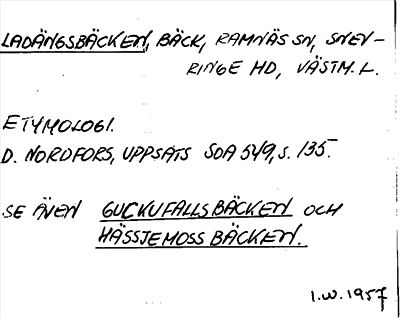 LADÄNGSBÄCKEN, BÄCK, RAMNÄS SN, SNEV-
RINGE HD, VÄSTM. L.
ETYMOLOGI.
D. NORDFORS, UPPSATS SOA 549, S. 135.
SE ÄVEN GUCKUFALLSBÄCKEN OCH
HÄSSJEMOSSBÄCKEN.
I.W. 1957